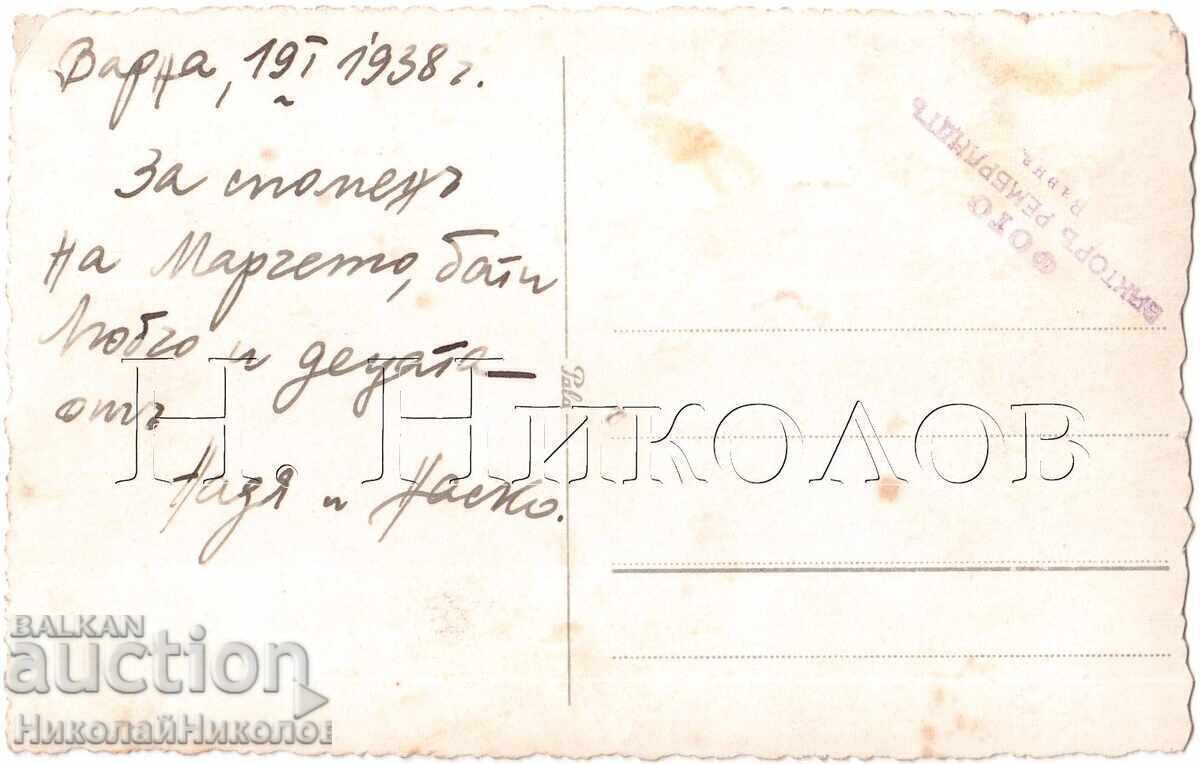 Варна, 19 I 1938 г.
За споменъ
на Маргето, бати
Любчо и децата
отъ
Надя и Наско.
ФОТО
ВИКТОРЪ РЕМБРАНДТЪ
Варна
Н. Николов
BALKAN
auction
НиколайНиколов